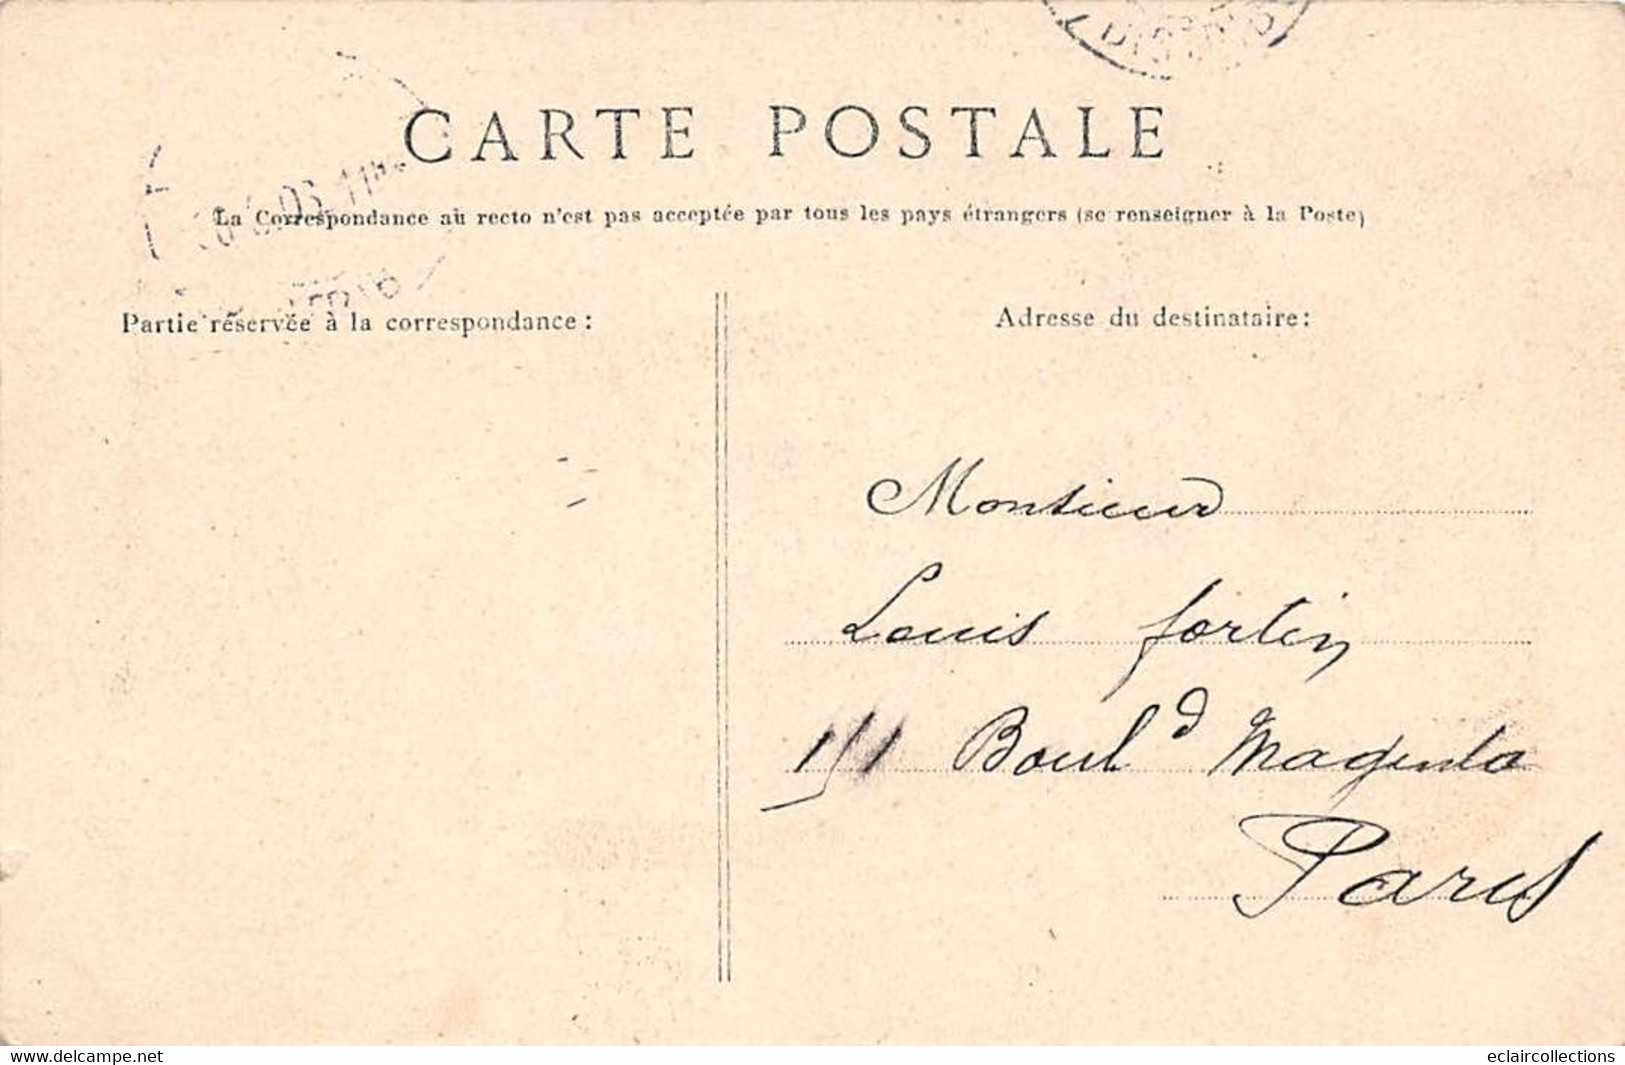 CARTE POSTALE
La Correspondance au recto n'est pas acceptée par tous les pays étrangers (se renseigner à la Poste)
Partie réservée à la correspondance :
Adresse du destinataire :
Monsieur
Louis fortin
151 Boul^d Magenta
Paris
www.delcampe.net
eclaircollections